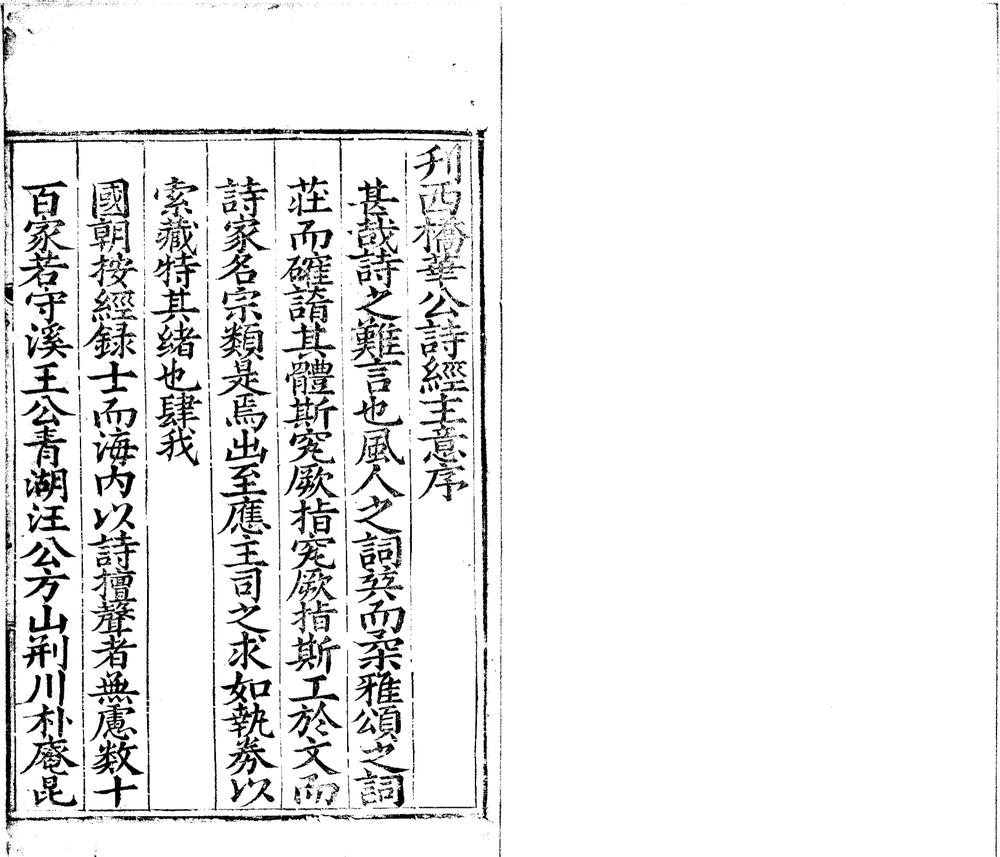 刋西橋華公詩經主意序
甚哉詩之難言也風人之詞㺯而柔雅頌之詞
莊而確誦其體斯究厥指究厥指斯工於文而
詩家名宗類是焉出至應主司之求如執券以
索藏特其緒也肆我
國朝按經録士而海内以詩擅聲者無慮数十
百家若守溪王公青湖汪公方山荆川朴庵昆